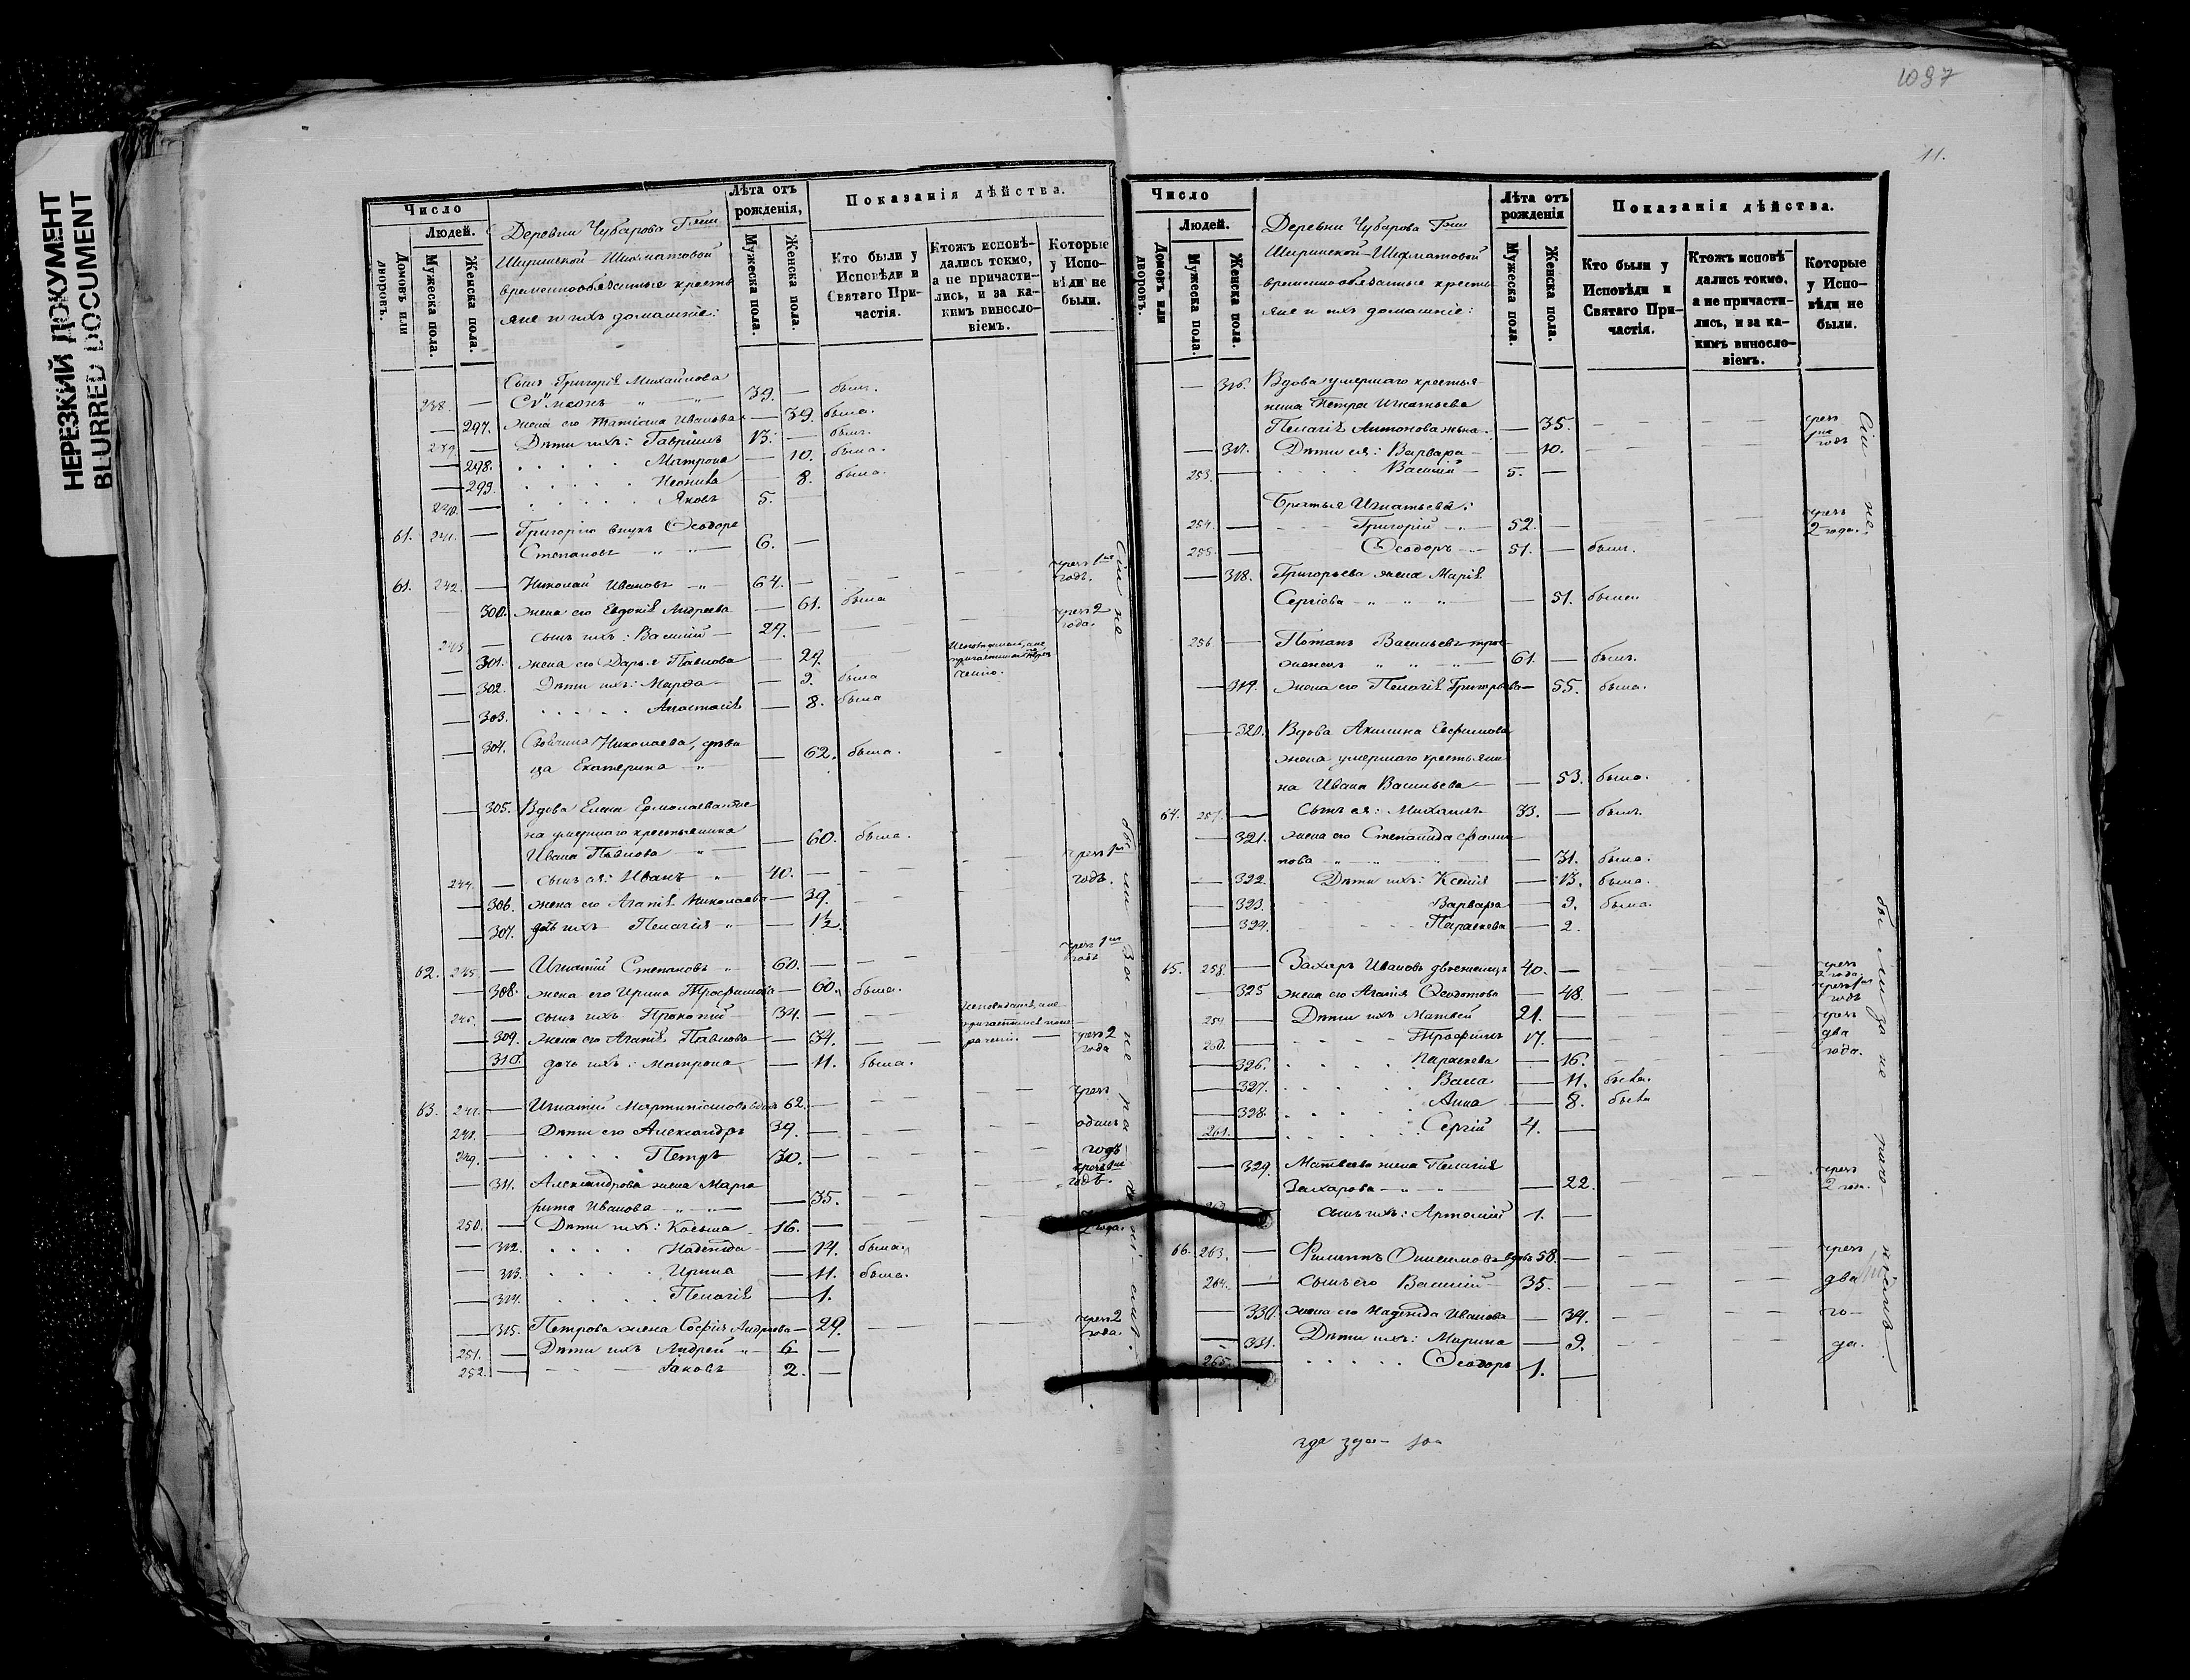 НЕРЕЗКИЙ ДОКУМЕНТ
BLURRED LOCUMENT
Число
Людей.
Домовъ или дворовъ.
Мужеска пола.
Женска пола.
Деревни Чубарова Гжи
Ширинской-Шихматовой
временнообязанные кресть
яне и ихъ домашніе:
Лѣта отъ рожденія,
Мужеска пола.
Женска пола.
Показанія дѣйства.
Кто были у Исповѣди и Святаго Причастія.
Ктожъ исповѣдались токмо, а не причастились, и за какимъ винословіемъ.
Которые у Исповѣди не были.
Сынъ Григорія Михайлова
238. — 39. — былъ.
— 297. жена его Татіана Иванова — 39. была.
239. — Дѣти ихъ: Гавріилъ 13. — былъ.
— 298. Матрона — 10. была.
— 299. — 8. была.
240. — Яковъ 5.
61. 241. — Григорію внукъ Ѳеодоръ
Степановъ — 6. —
61. 242. — Николай Ивановъ — 64. — чрезъ 1нъ годъ.
300. жена его Евдокія Андреева — 61. была
243 — сынъ ихъ: Василій — 29. — чрезъ 2 года.
— 301. жена его Дарья Павлова — 29.
— 302. Дѣти ихъ: Марѳа — 9. была
— 303. Анастасія — 8. была
— 304. Николаева, дѣви
ца Екатерина — 62. была.
— 305. Вдова Елена Ермолаева же
на умершаго крестьянина
Ивана Павлова — 60. была.
244. — сынъ ея: Иванъ — 40. — чрезъ 1нъ годъ.
— 306. жена его Агапія Николаева — 39.
— 307. дочь ихъ Пелагія — 1½
62. 245. — Игнатій Степановъ 60. — чрезъ 1нъ годъ
— 308. жена его Ирина Трофимова — 60. была.
246. — сынъ ихъ Прокопій — 34. —
— 309. жена его Агапія Павлова — 34. — чрезъ 2 года
310. дочь ихъ: Матрона — 11. была.
63. 247. — Игнатій 62. — чрезъ
248. — Дѣти его Александръ 39. — одинъ
249. — Петръ 30. — годъ
— 311. Александрова жена Марга
рита Иванова — 35. чрезъ 1нъ годъ.
250. — Дѣти ихъ: Косьма 16. — 2 года.
— 312. Надежда — 14. была.
— 313. Ирина — 11. была.
— 314. Пелагія — 1.
— 315. Петрова жена Софія Андреева — 29. — чрезъ 2 года.
251. — Дѣти ихъ Андрей — 6 —
252. — Іаковъ 2. —
1097
11.
Число
Людей.
Домовъ или дворовъ.
Мужеска пола.
Женска пола.
Деревни Чубарова Гжи
Ширинской-Шихматовой
временнообязанные кресть
яне и ихъ домашніе:
Лѣта отъ рожденія
Мужеска пола.
Женска пола.
Показанія дѣйства.
Кто были у Исповѣди и Святаго Причастія.
Ктожъ исповѣдались токмо, а не причастились, и за какимъ винословіемъ.
Которые у Исповѣди не были.
— 316. Вдова умершаго крестья
нина Петра Игнатьева
Пелагія Антонова жена — 35. чрезъ 1нъ годъ
— 317. Дѣти ея: Варвара — 10.
253. — Василій — 5. —
Братья Игнатьева:
254. — Григорій — 52. — чрезъ 2 года.
255. — Ѳеодоръ — 51. — былъ.
— 318. Григорьева жена Марія
Сергіева — 51. была.
256 — Потапъ Васильевъ трое
женецъ 61. — былъ.
— 319. жена его Пелагія Григорьева — 55. была.
— 320. Вдова Акилина Евфимова
жена умершаго крестьяни
на Ивана Васильева — 53. была.
64. 257. — Сынъ ея: Михаилъ 33. — былъ.
— 321. жена его Степанида
— 31. была.
— 322. Дѣти ихъ: Ксенія — 13. была.
— 323. Варвара — 9. была.
— 324. Параскева — 2.
65. 258. — Захаръ Ивановъ двоеженецъ 40. — чрезъ 2 года.
— 325 жена его Агапія Ѳеодотова — 48. чрезъ 1нъ годъ
259 — Дѣти ихъ Матвей 21. — чрезъ
260. — Трофимъ 17. — два
— 326. Параскева — 16. года.
— 327. Васса — 11. была.
— 328. Анна — 8. была
261. — Сергій 4. —
— 329. Матвеева жена Пелагія
Захарова — 22. чрезъ 2 года.
сынъ ихъ: Артемій 1. —
66. 263. — Филиппъ Онисимовъ вдовъ 58. — чрезъ
264. — сынъ его Василій — 35. — два
— 330. жена его Надежда Иванова — 34. — го-
— 331. Дѣти ихъ: Марина — 9. да.
265. — Ѳеодоръ 1. —